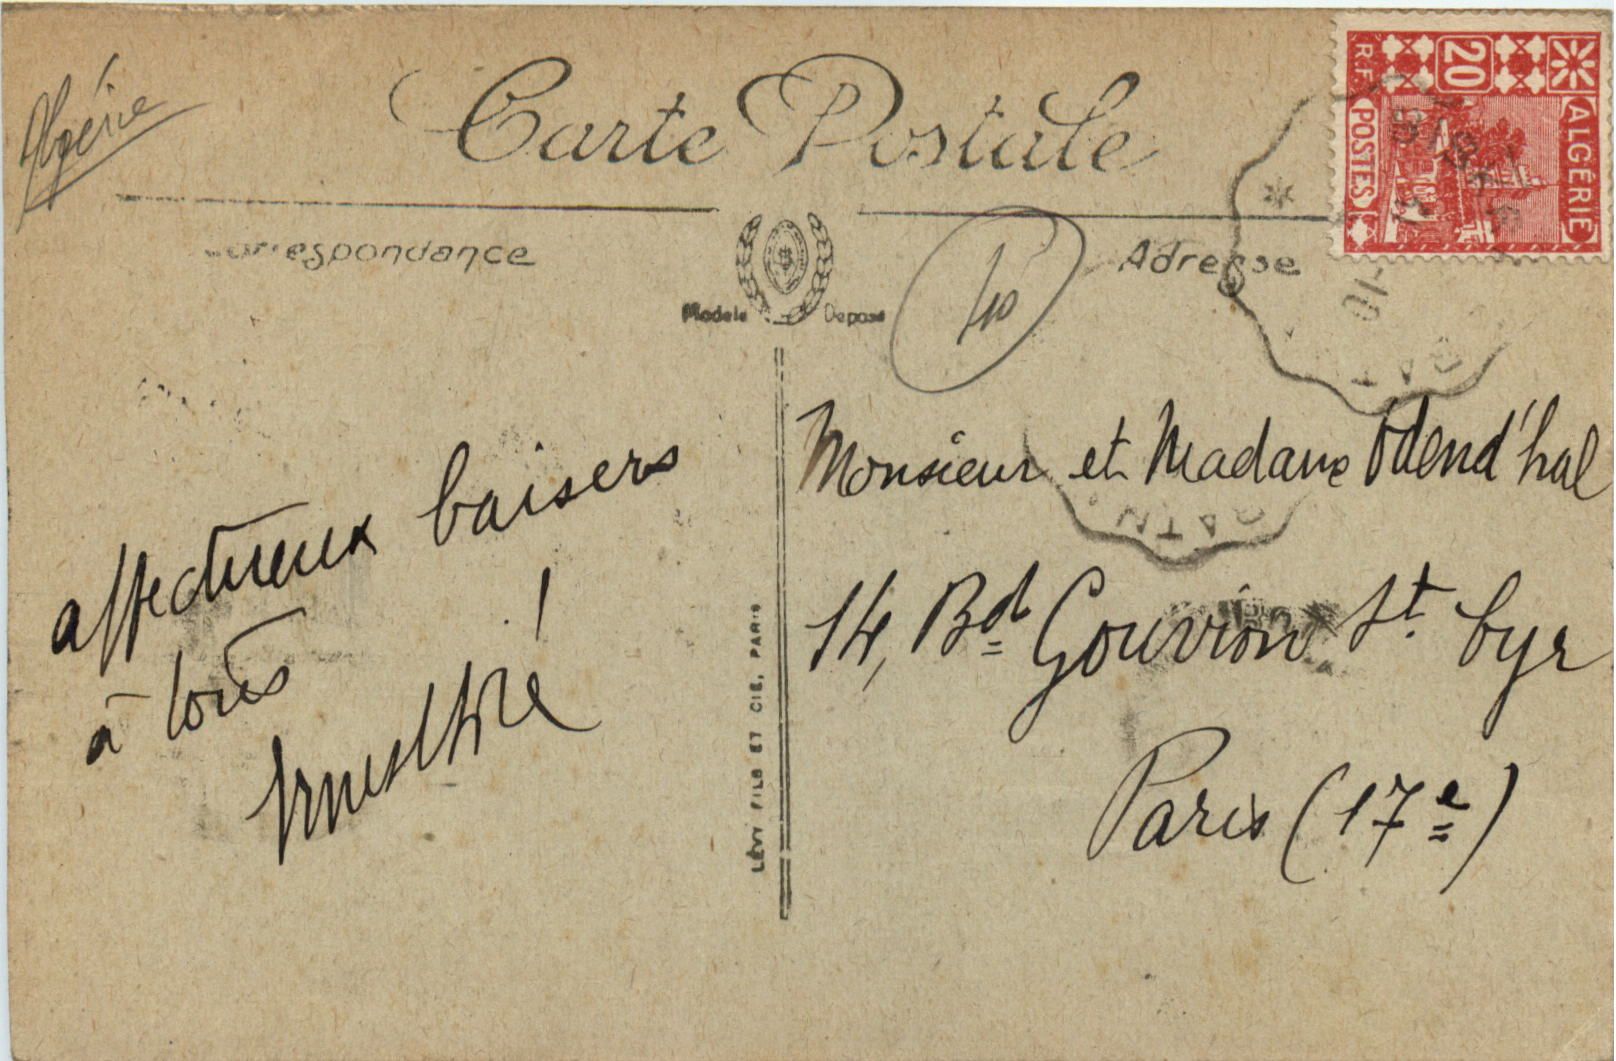 Algérie
Carte Postale
Correspondance
Adresse
Modele Depose
10
20
R.F.
POSTES
ALGÉRIE
affectueux baisers
à tous !
Monsieur et Madame Odend'hal
14, Bd Gouvion St. Cyr
Paris (17e)
LÉVY FILS ET CIE, PARIS